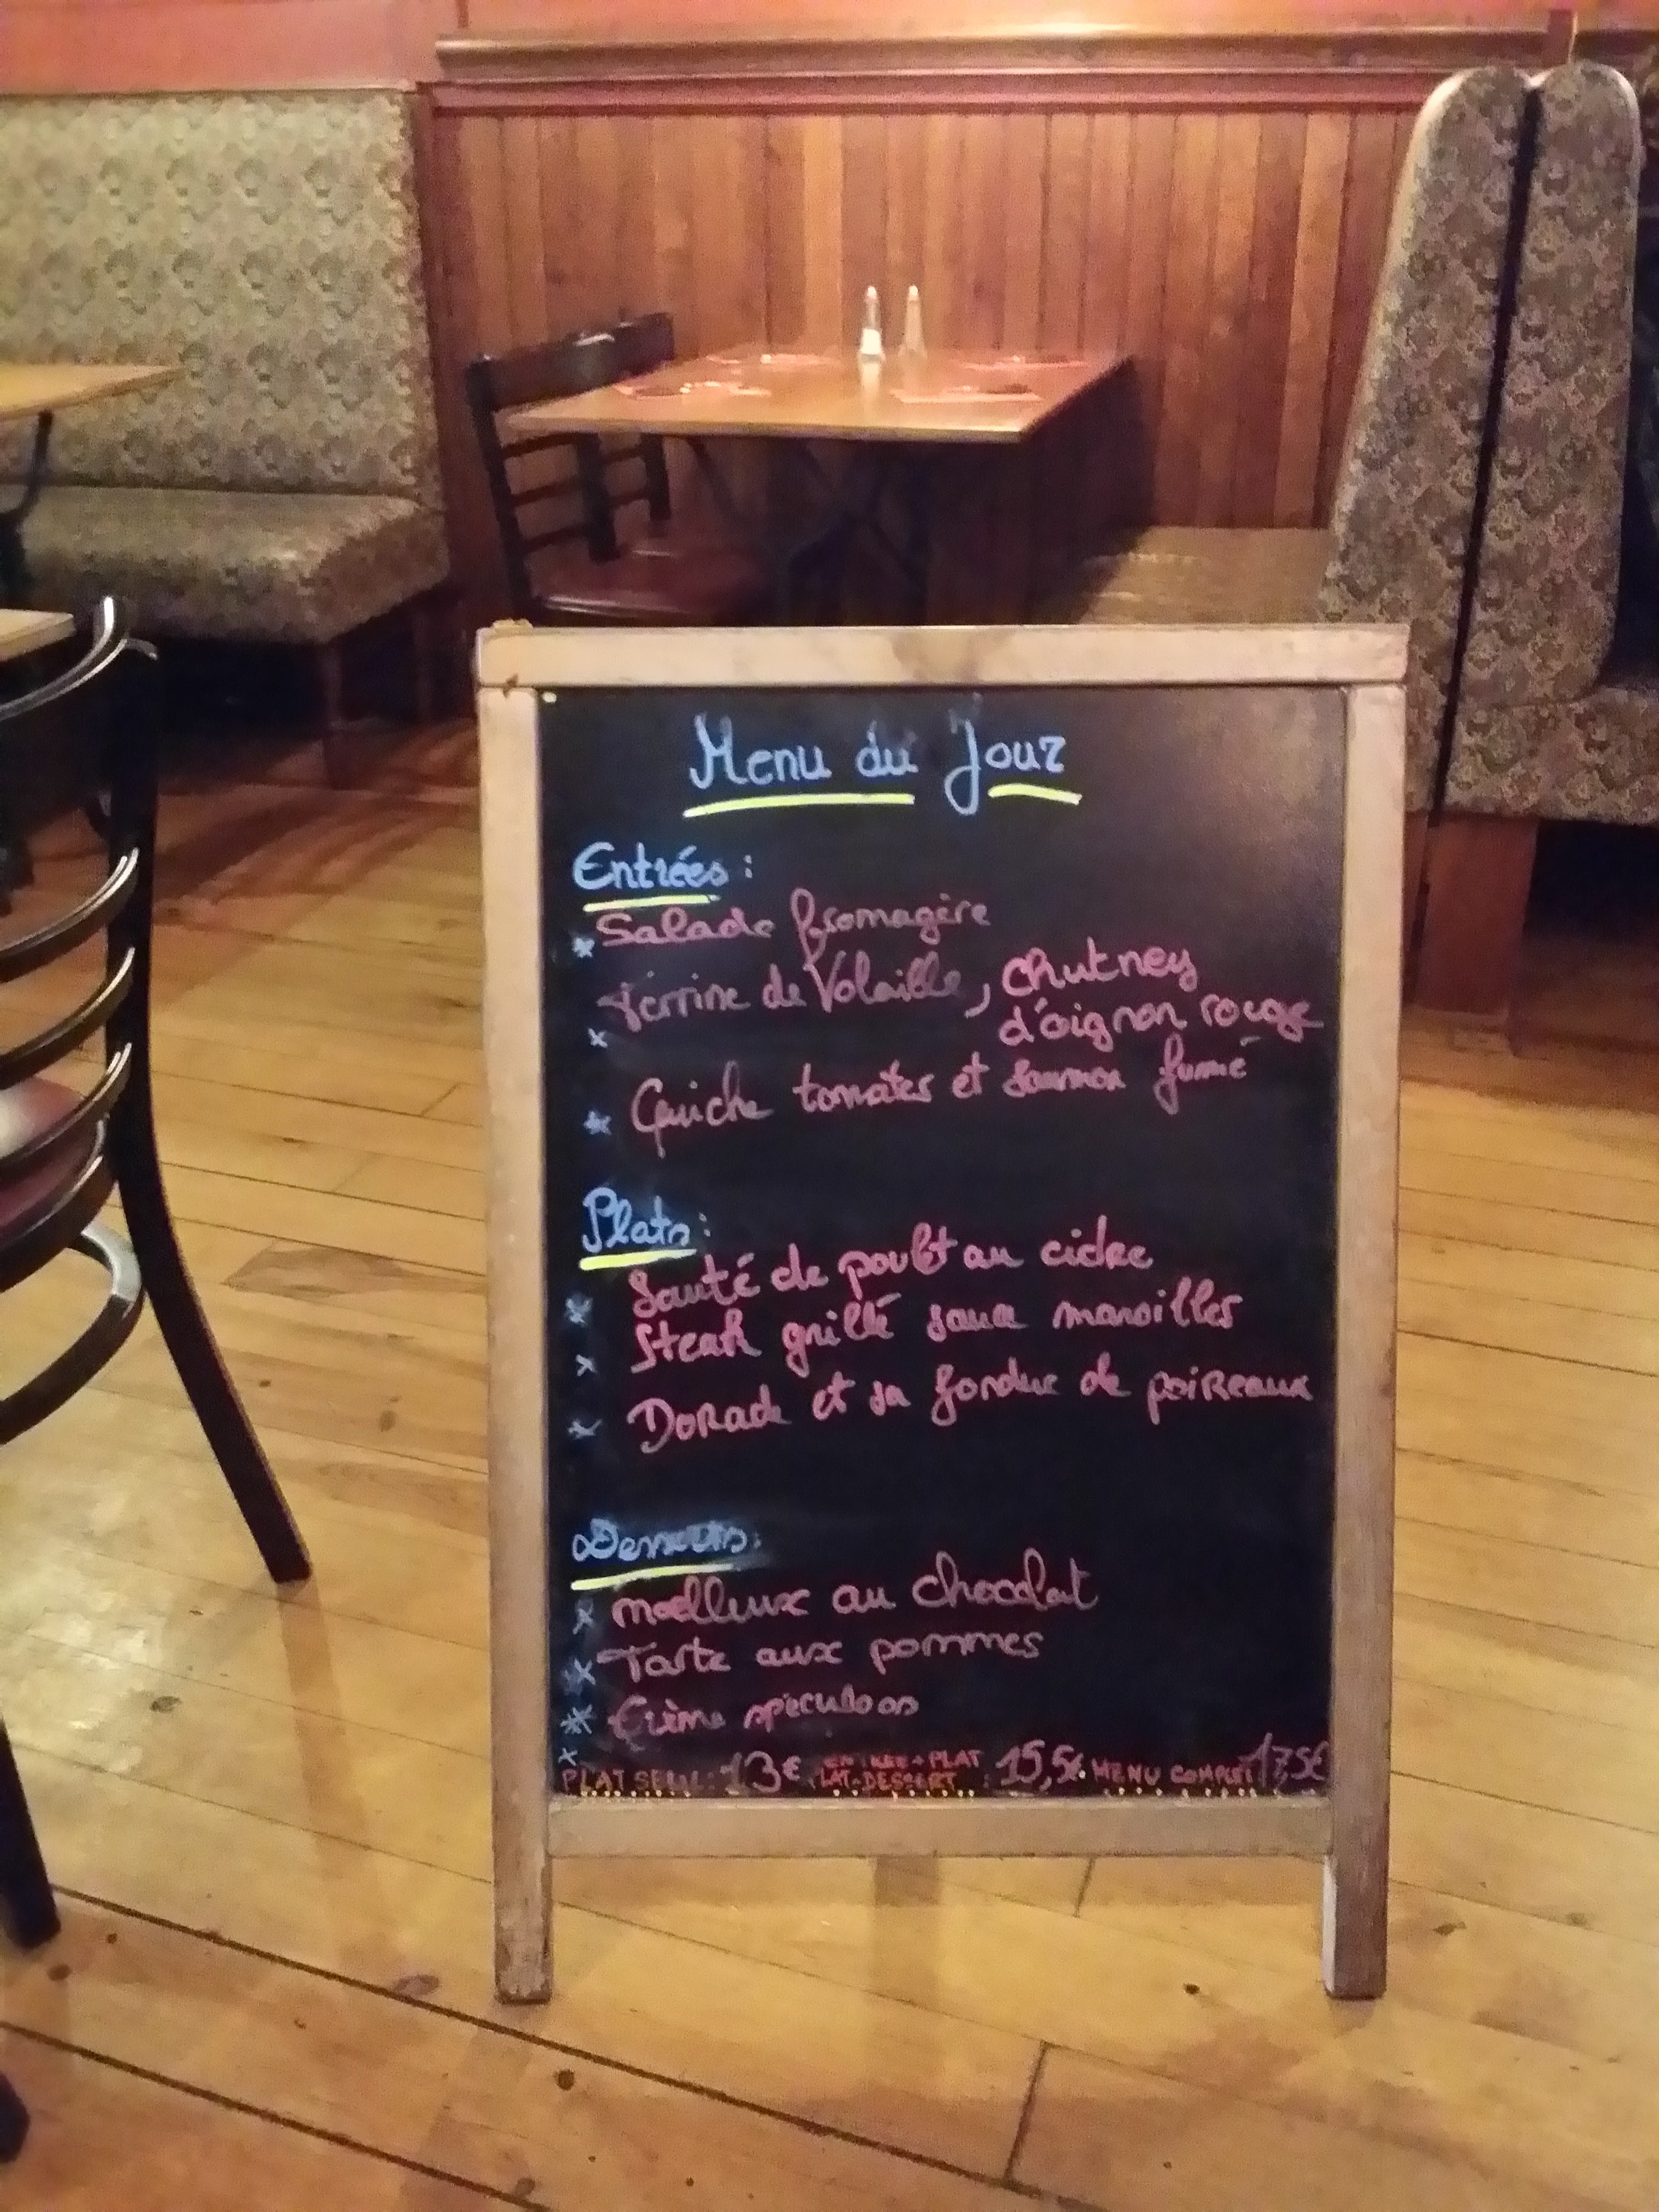 Menu du Jour
Entrées :
* Salade fromagère
* Terrine de Volaille, chutney
d'oignon rouge
* Quiche tomates et saumon fumé
Plats :
* Sauté de poulet au cidre
* Steak grillé sauce maroilles
* Dorade et sa fondue de poireaux
Desserts :
* moelleux au chocolat
* Tarte aux pommes
* Crème spéculoos
*
PLAT SEUL : 13€ ENTREE + PLAT
PLAT-DESSERT : 15,5€. MENU COMPLET 17,5€